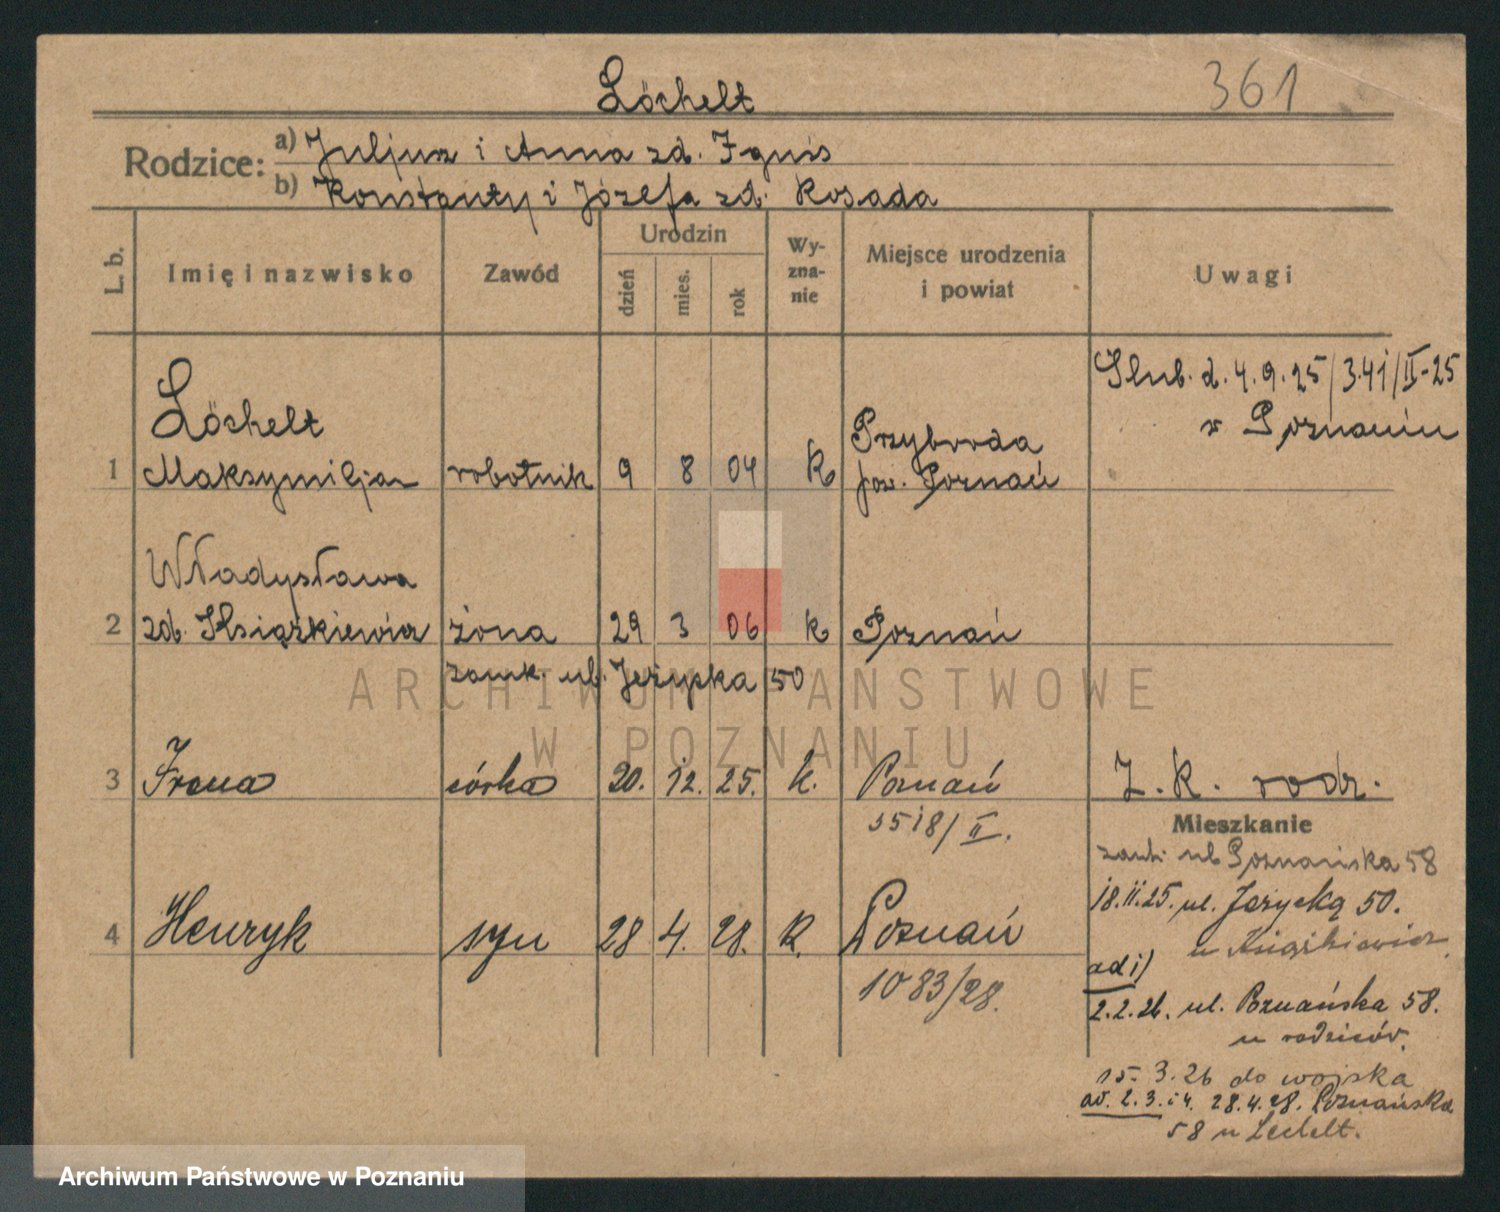 361
Löchelt
Rodzice:
a) Juljusz i Anna zd. Ignis
b) Konstanty i Józefa zd. Kosada
L. b.
Imię i nazwisko
Zawód
Urodzin
dzień
mies.
rok
Wy-
zna-
nie
Miejsce urodzenia
i powiat
Uwagi
Ślub. d. 4.9.25/341/II-25
w Poznaniu
Löchelt
Przybroda
1 Maksymiljan robotnik 9 8 04 K pow. Poznań
Władysława
2 zd. Książkiewicz żona 29 3 06 K Poznań
zamk. ul. Jeżycka 50
3 Irena córka 20. 12. 25. k. Poznań Z. K. rodz.
5518/II.
Mieszkanie
zamk. ul Poznańska 58
18.11.25. ul. Jeżycką 50.
4 Henryk syn 28 4. 28. K. Poznań
u Książkiewicz.
ad 1)
1083/28.
2.2.26. ul. Poznańska 58.
u rodziców.
15. 3. 26 do wojska
ad. 2. 3. i 4. 28.4.28. Poznańska
58 u Lechelt.
ARCHIWUM PAŃSTWOWE
W POZNANIU
Archiwum Państwowe w Poznaniu